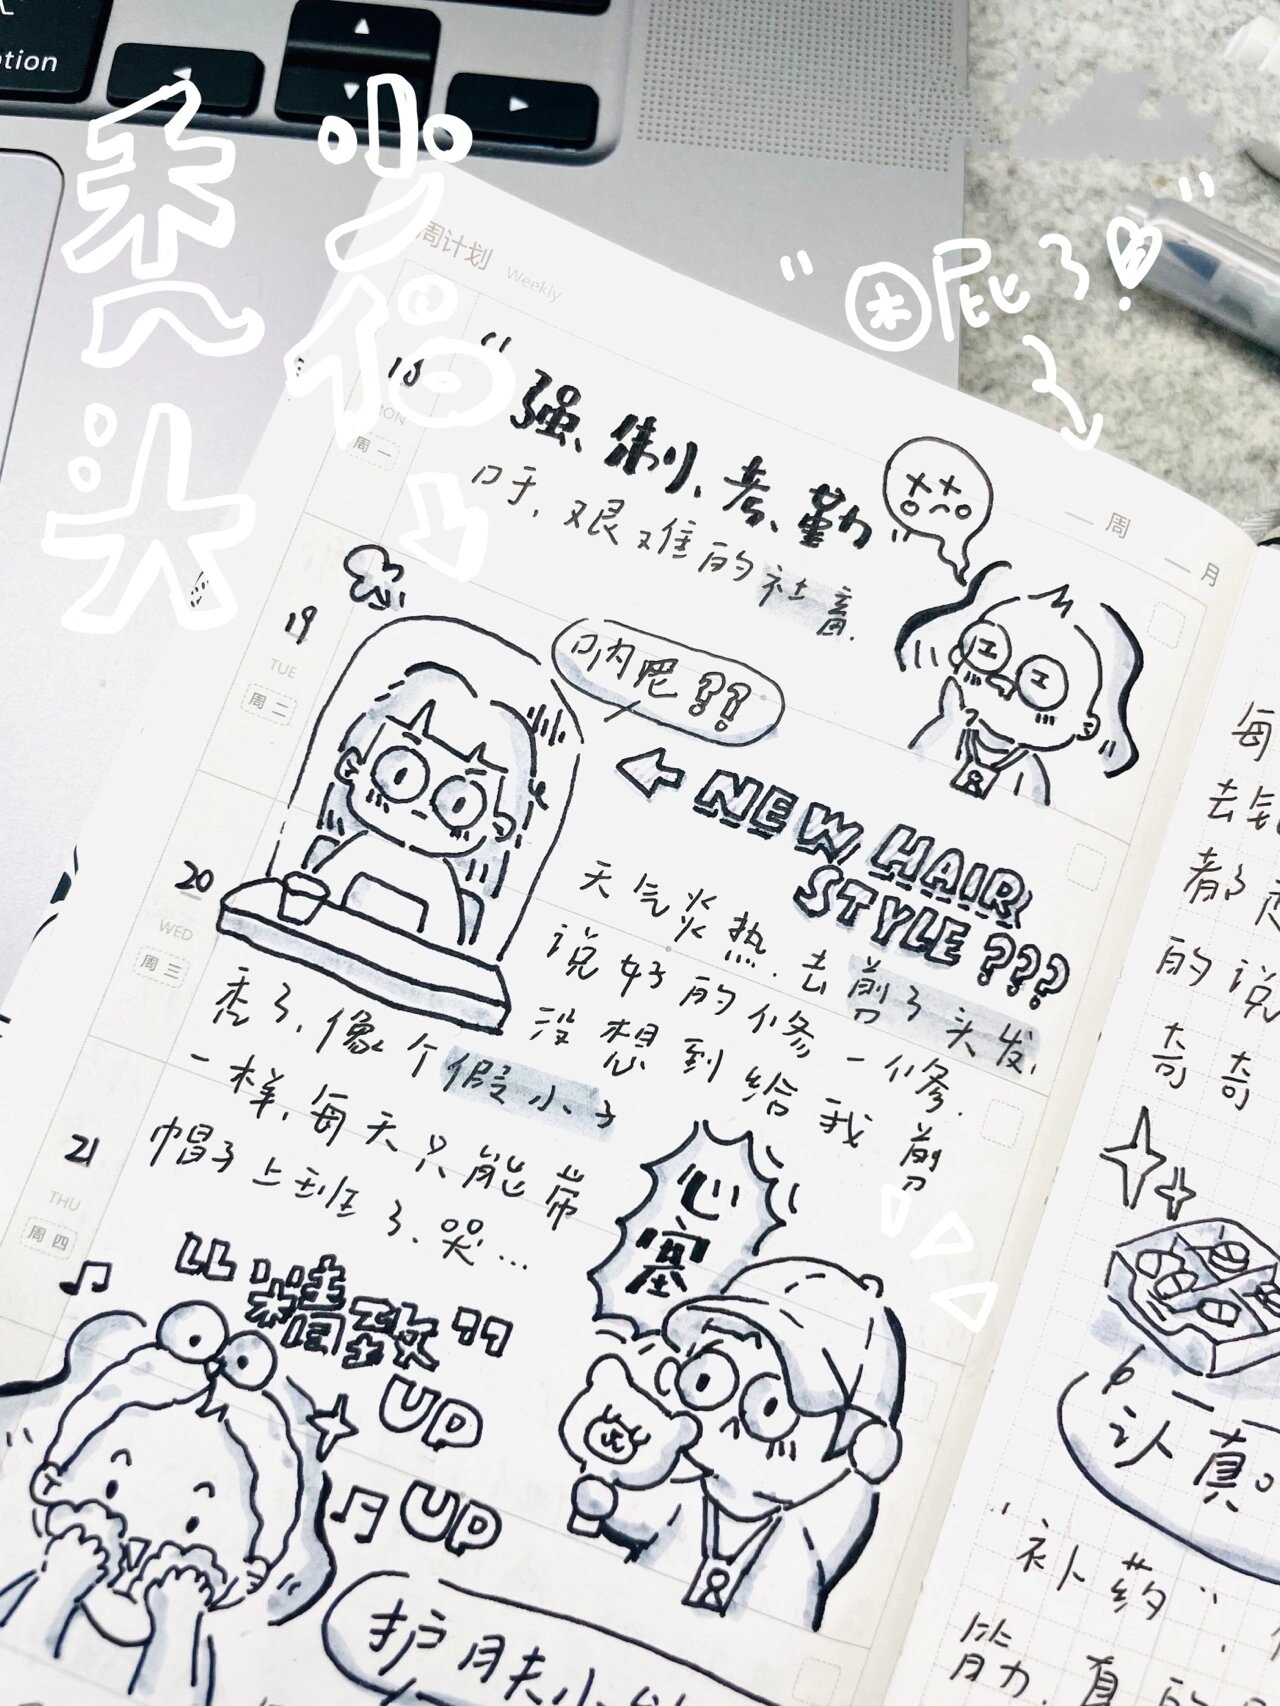 ption
秃头
少个
"困屁了!"
周计划 Weekly
一周
一月
18
MON
周一
"强、制、考、勤
吁,艰难的社畜.
19
TUE
周二
呐吧??
NEW HAIR
STYLE???
20
WED
周三
天气炎热.去剪了头发,
说好的修一修.
没想到给我剪
秃了,像个假小子
一样,每天只能带
帽子上班了、哭...
21
THU
周四
心塞
"精致"
UP
UP
护肤小
每
去
都
的说
奇奇
认真
"补药"
筋,真的